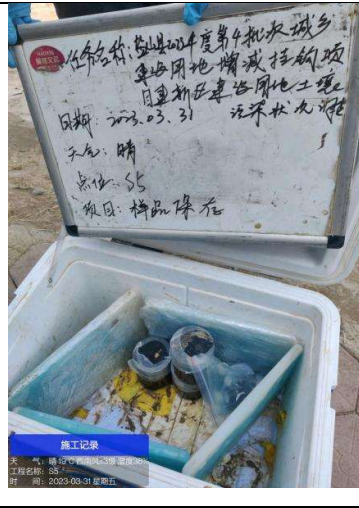 任务名称:萧县2021年度第4批次城乡
建设用地增减挂钩项
目建新区建设用地土壤
污染状况调查
日期:2023.03.31
天气:晴
点位:S5
项目:样品保存
施工记录
天 气:晴 19℃ 西南风≤3级 湿度38%
工程名称:S5
时 间:2023-03-31 星期五